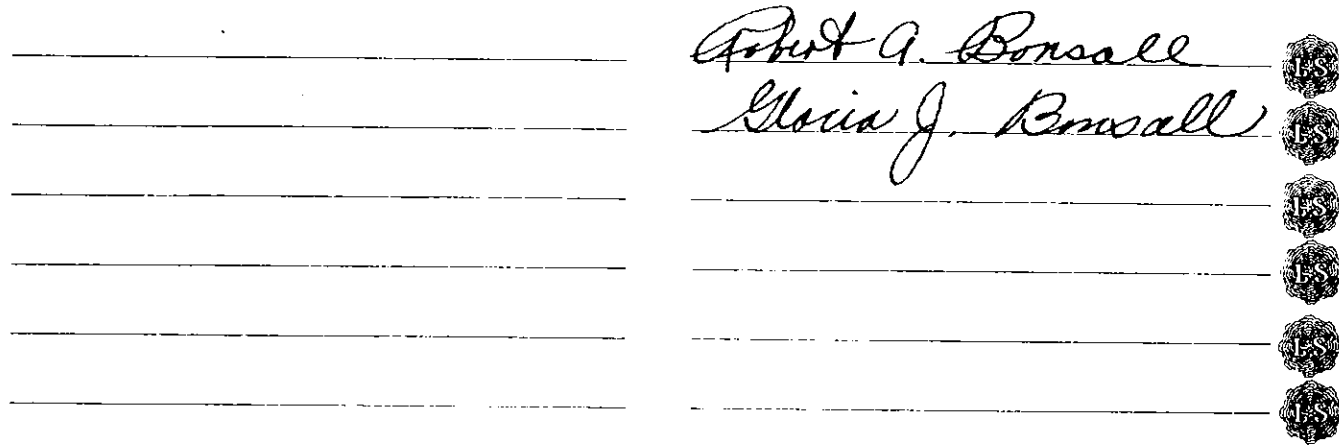 Robert A. Bonsall LS
Gloria J. Bonsall LS
LS
LS
LS
LS